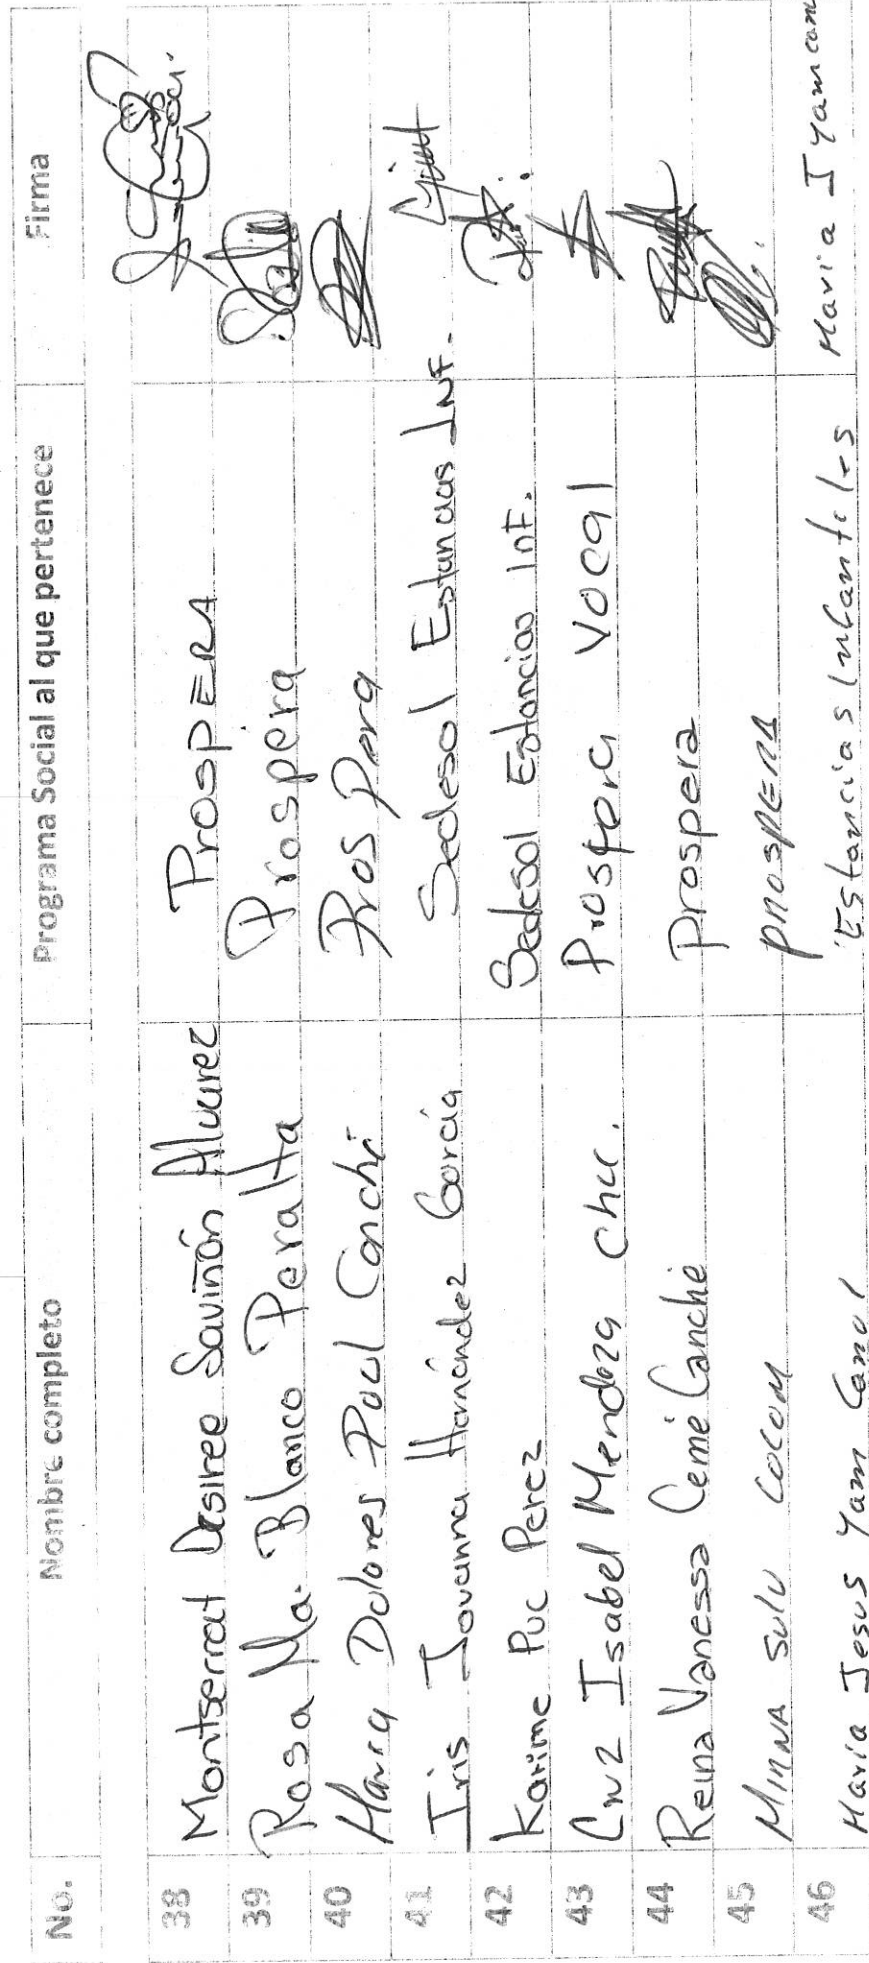 No. Nombre completo Programa Social al que pertenece Firma
38 Montserrat Desiree Saviñón Alvarez ProspERA
39 Rosa Ma. Blanco Peralta Prospera
40 Maria Dolores Pool Canché Prospera
41 Iris Jovanna Hernández García Sedesol Estancias INF.
42 Karime Puc Perez Sedesol Estancias INF.
43 Cruz Isabel Mendoza Chuc. Prospera Vocal
44 Reina Vanessa Cemé Canche Prospera
45 MIRNA SULU COCOM PROSPERA
46 Maria Jesus Yam Canul Estancias Infantiles Maria J yam canu